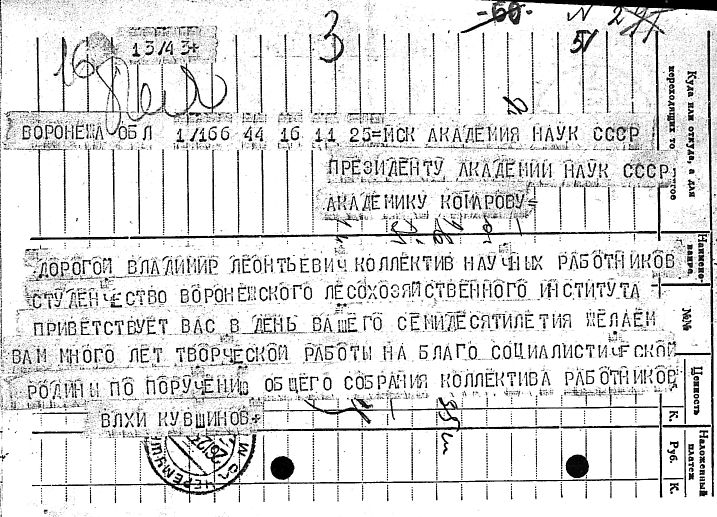 -60-
N 297
51
3
16
13/43+
ВОРОНЕЖА ОБЛ 17166 44 16 11 25=МСК АКАДЕМИЯ НАУК СССР
ПРЕЗИДЕНТУ АКАДЕМИИ НАУК СССР
АКАДЕМИКУ КОМАРОВУ=
ДОРОГОЙ ВЛАДИМИР ЛЕОНТЬЕВИЧ КОЛЛЕКТИВ НАУЧНЫХ РАБОТНИКОВ
СТУДЕНЧЕСТВО ВОРОНЕЖСКОГО ЛЕСОХОЗЯЙСТВЕННОГО ИНСТИТУТА
ПРИВЕТСТВУЕТ ВАС В ДЕНЬ ВАШЕГО СЕМИДЕСЯТИЛЕТИЯ ЖЕЛАЕМ
ВАМ МНОГО ЛЕТ ТВОРЧЕСКОЙ РАБОТЫ НА БЛАГО СОЦИАЛИСТИЧЕСКОЙ
РОДИНЫ ПО ПОРУЧЕНИЮ ОБЩЕГО СОБРАНИЯ КОЛЛЕКТИВА РАБОТНИКОВ
ВЛХИ КУВШИНОВ+
Куда или откуда, а для
переходящих то
Наимено-
№№
Ценность
К.
Наложенный
платеж
Руб.
К.